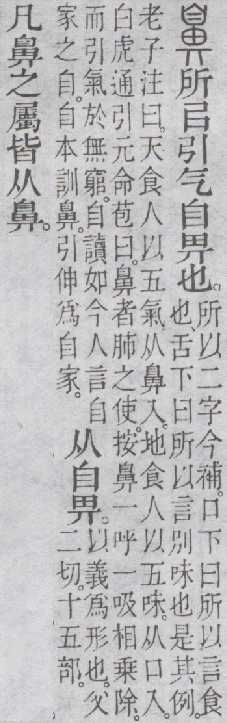 鼻所㠯引气自畀也。
所以二字今補。口下曰所以言食
也。舌下曰所以言別味也。是其例。
老子注曰。天食人以五氣。从鼻入。地食人以五味。从口入。
白虎通引元命苞曰。鼻者肺之使。按鼻一呼一吸相乘除。
而引氣於無窮。自讀如今人言自
家之自。自本訓鼻。引伸爲自家。
从自畀。
以義爲形也。父
二切。十五部。
凡鼻之屬皆从鼻。